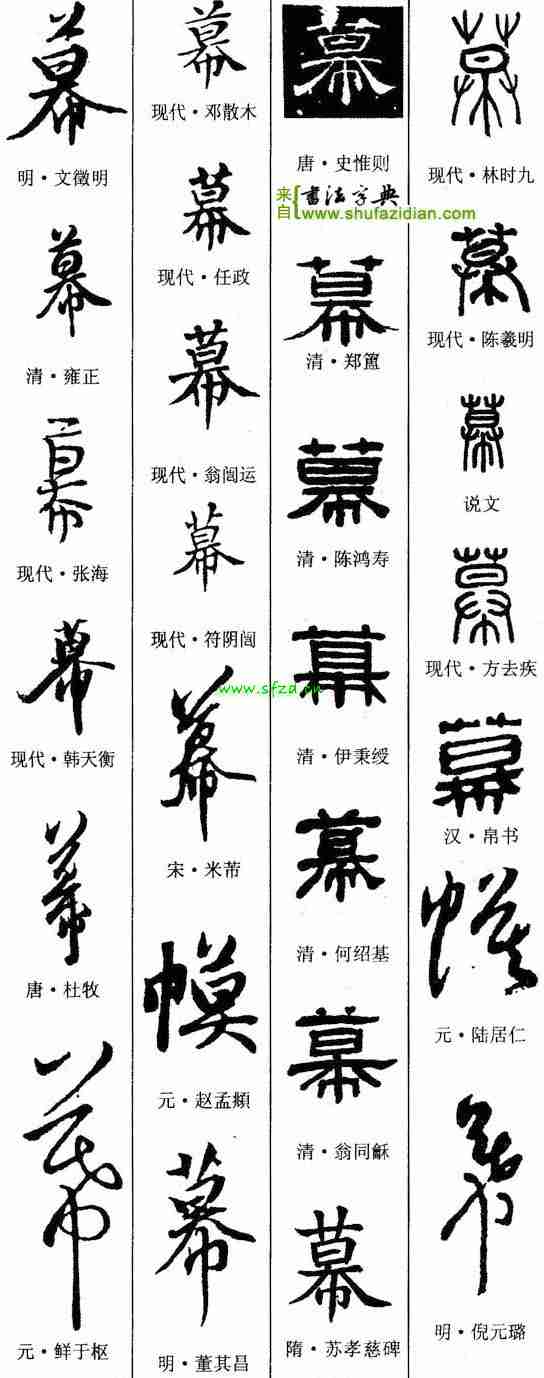 幕
明·文徵明
幕
清·雍正
幕
现代·张海
幕
现代·韩天衡
幕
唐·杜牧
幕
元·鲜于枢
幕
现代·邓散木
幕
现代·任政
幕
现代·翁闿运
幕
现代·符阴闿
www.sfzd.cn
幕
宋·米芾
幙
元·赵孟頫
幕
明·董其昌
幕
唐·史惟则
来自 書法字典
www.shufazidian.com
幕
清·郑簠
幕
清·陈鸿寿
幕
清·伊秉绶
幕
清·何绍基
幕
清·翁同龢
幕
隋·苏孝慈碑
幕
现代·林时九
幕
现代·陈羲明
幕
说文
幕
现代·方去疾
幕
汉·帛书
幙
元·陆居仁
幕
明·倪元璐